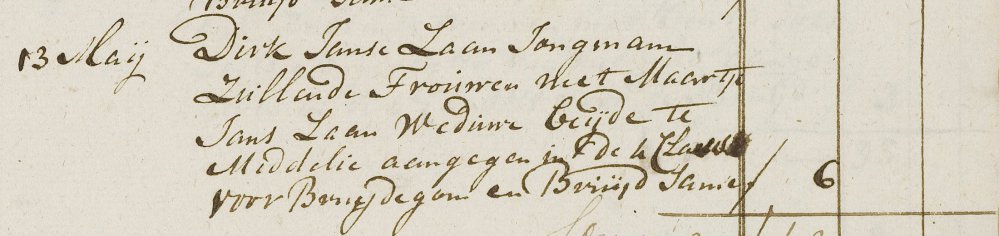 13 Maij Dirk Janse Laan Jongman
Zullende Trouwen met Maartje
Jans Laan Weduwe beijde te
Middelie aangegen in de 4 Classe
voor Bruijdegom en Bruijd Samen / 6